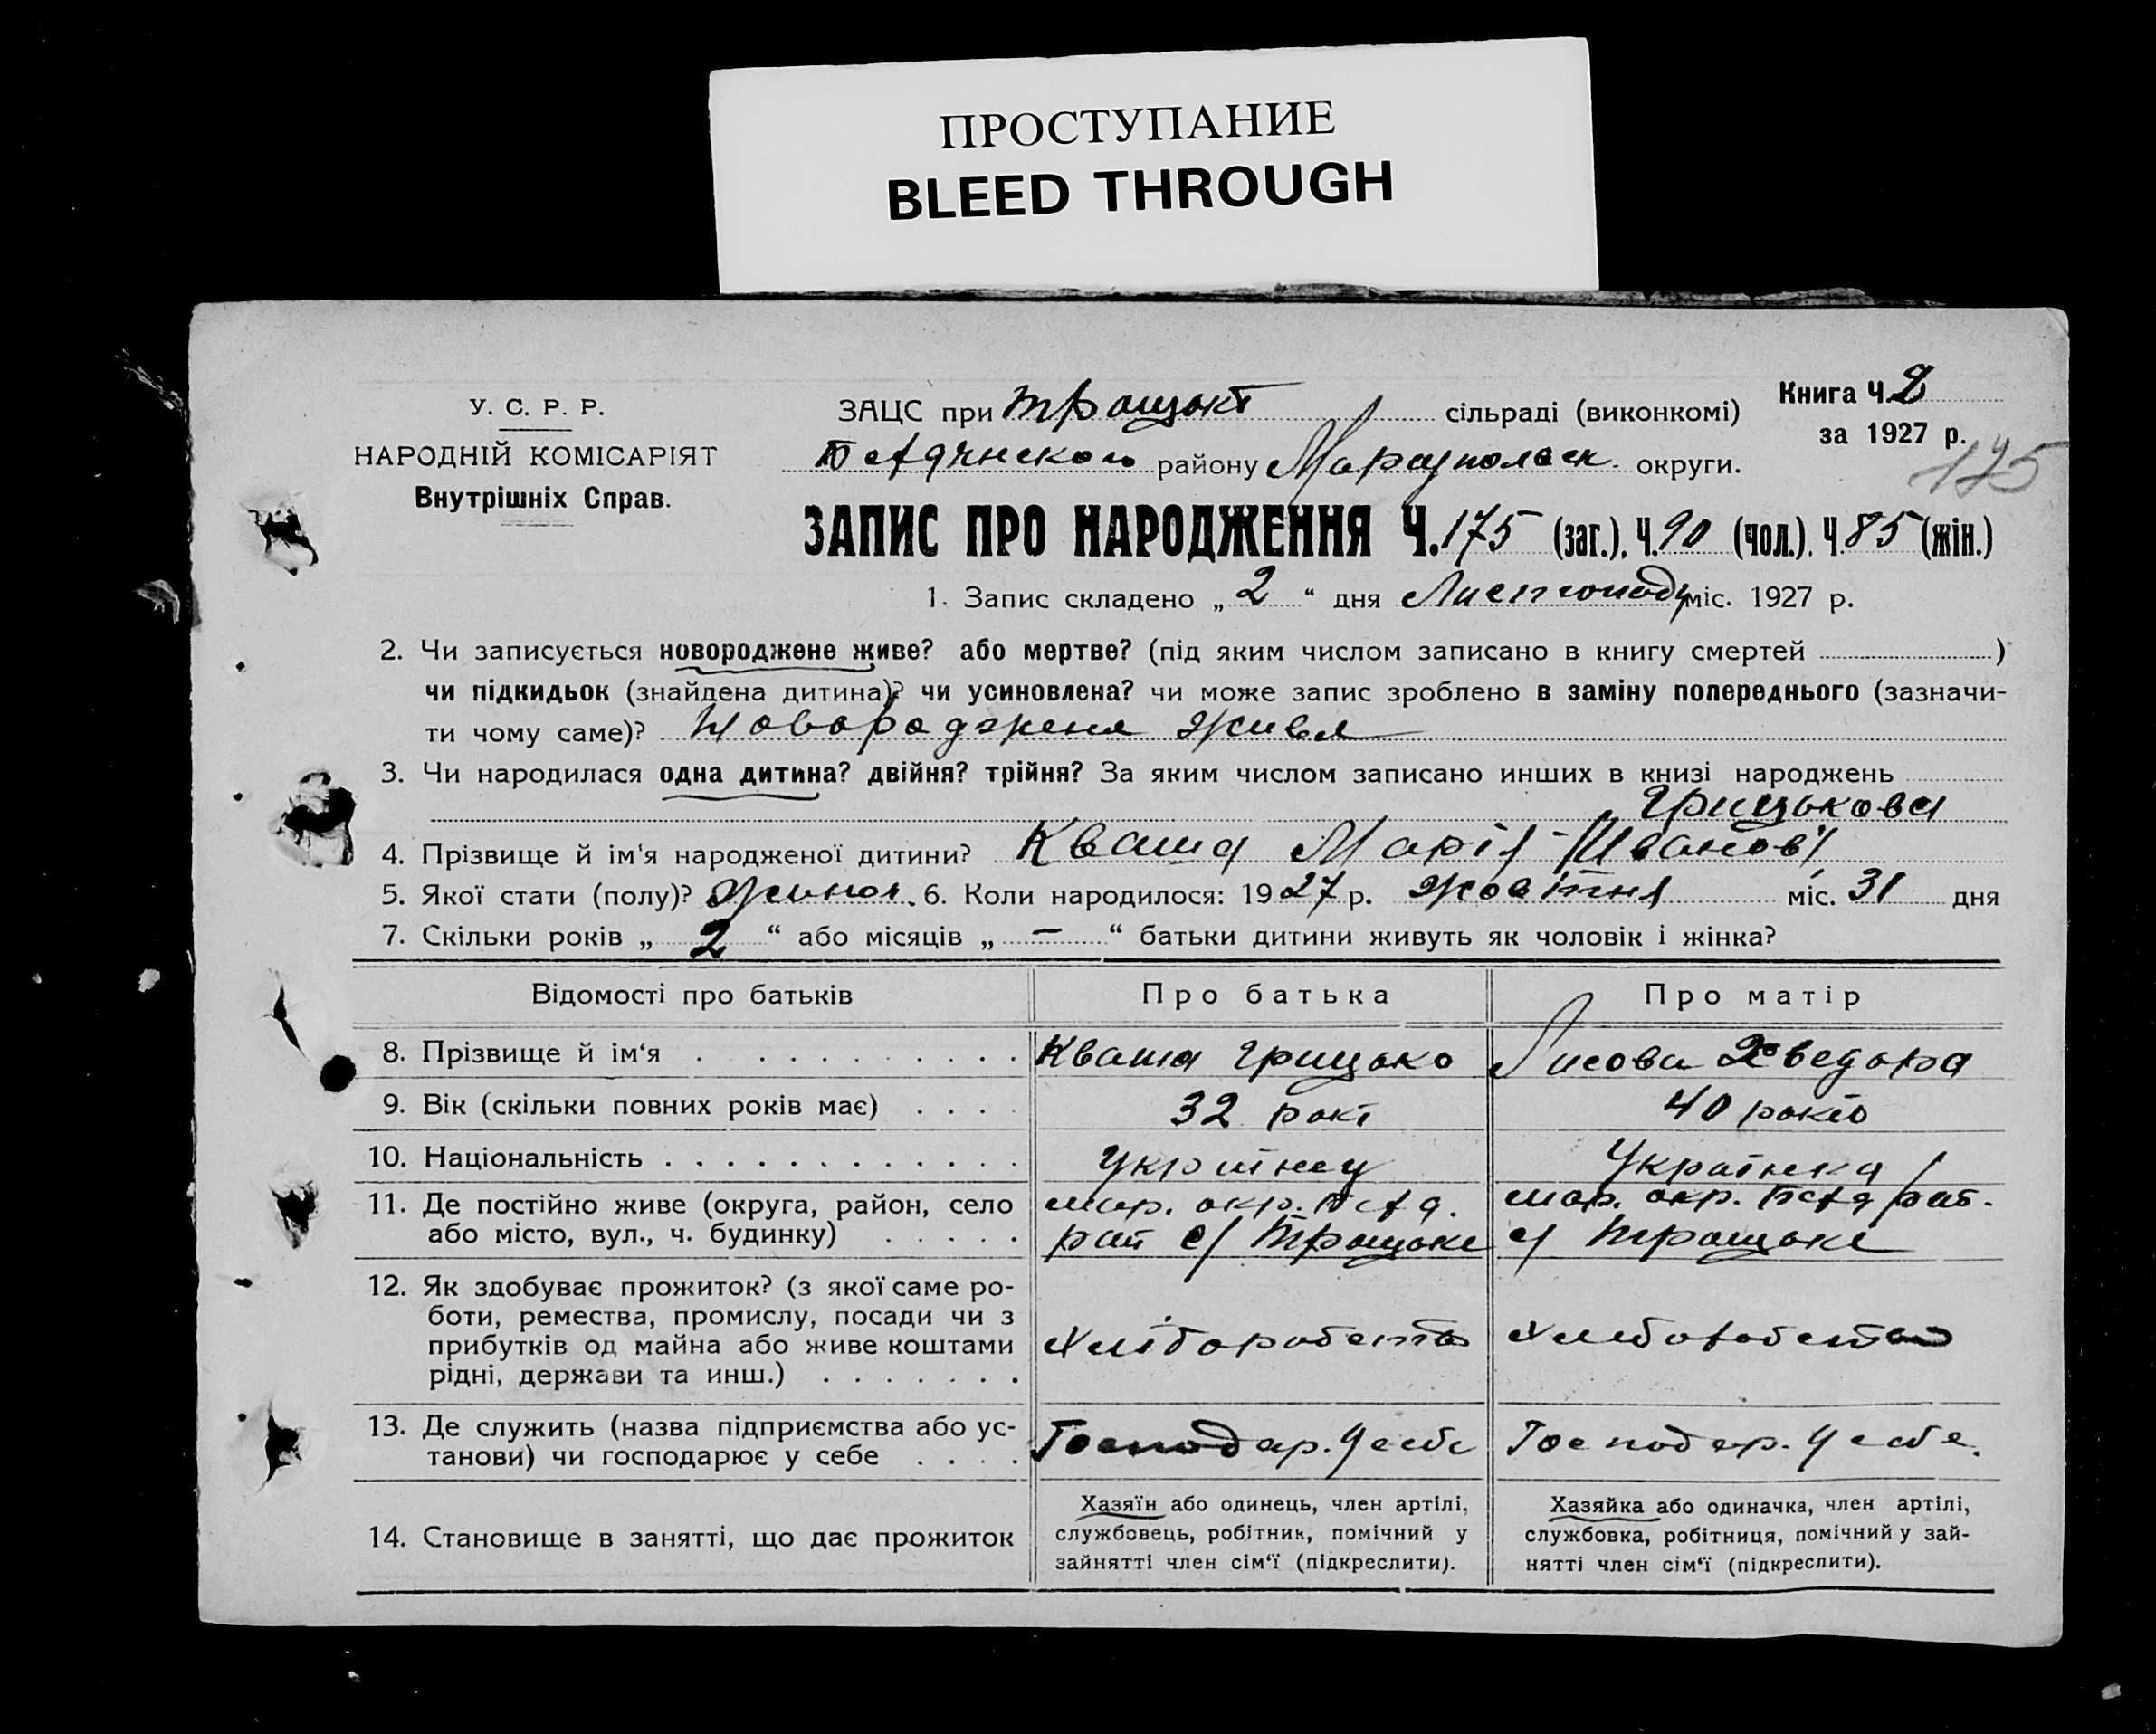 ПРОСТУПАНИЕ
BLEED THROUGH
У. С. Р. Р.
НАРОДНІЙ КОМІСАРІЯТ
Внутрішніх Справ.
ЗАЦС при Троцькі сільраді (виконкомі)
району Маріупольск. округи.
Книга Ч. 2
за 1927 р.
175
ЗАПИС ПРО НАРОДЖЕННЯ Ч. 175 (заг.), Ч. 90 (чол.). Ч. 85 (жін.)
1. Запис складено „ 2 “ дня Листопаду міс. 1927 р.
2. Чи записується новороджене живе? або мертве? (під яким числом записано в книгу смертей )
чи підкидьок (знайдена дитина)? чи усиновлена? чи може запис зроблено в заміну попереднього (зазначи-
ти чому саме)? Новороджене живе
3. Чи народилася одна дитина? двійня? трійня? За яким числом записано инших в книзі народжень
Грицькова
4. Прізвище й ім'я народженої дитини? Кваша Марія Иванов
5. Якої стати (полу)? жіноч. 6. Коли народилося: 1927 р. Жовтня міс. 31 дня
7. Скільки років „ 2 “ або місяців „ — “ батьки дитини живуть як чоловік і жінка?
Відомості про батьків Про батька Про матір
8. Прізвище й ім'я Кваша Грицько Лисова
9. Вік (скільки повних років має) 32 рокі 40 років
10. Національність Украінец Украінка
11. Де постійно живе (округа, район, село мар. окр. мар. окр.
або місто, вул., ч. будинку) рай с/ Троцьке с/ Троцьке
12. Як здобуває прожиток? (з якої саме ро-
боти, ремества, промислу, посади чи з
прибутків од майна або живе коштами Хліборобство Хліборобство
рідні, держави та инш.)
13. Де служить (назва підприємства або ус-
танови) чи господарює у себе Господар. У себе Господар. У себе.
14. Становище в занятті, що дає прожиток
Хазяїн або одинець, член артілі,
службовець, робітник, помічний у
зайнятті член сім'ї (підкреслити).
Хазяйка або одиначка, член артілі,
службовка, робітниця, помічний у зай-
нятті член сім'ї (підкреслити).